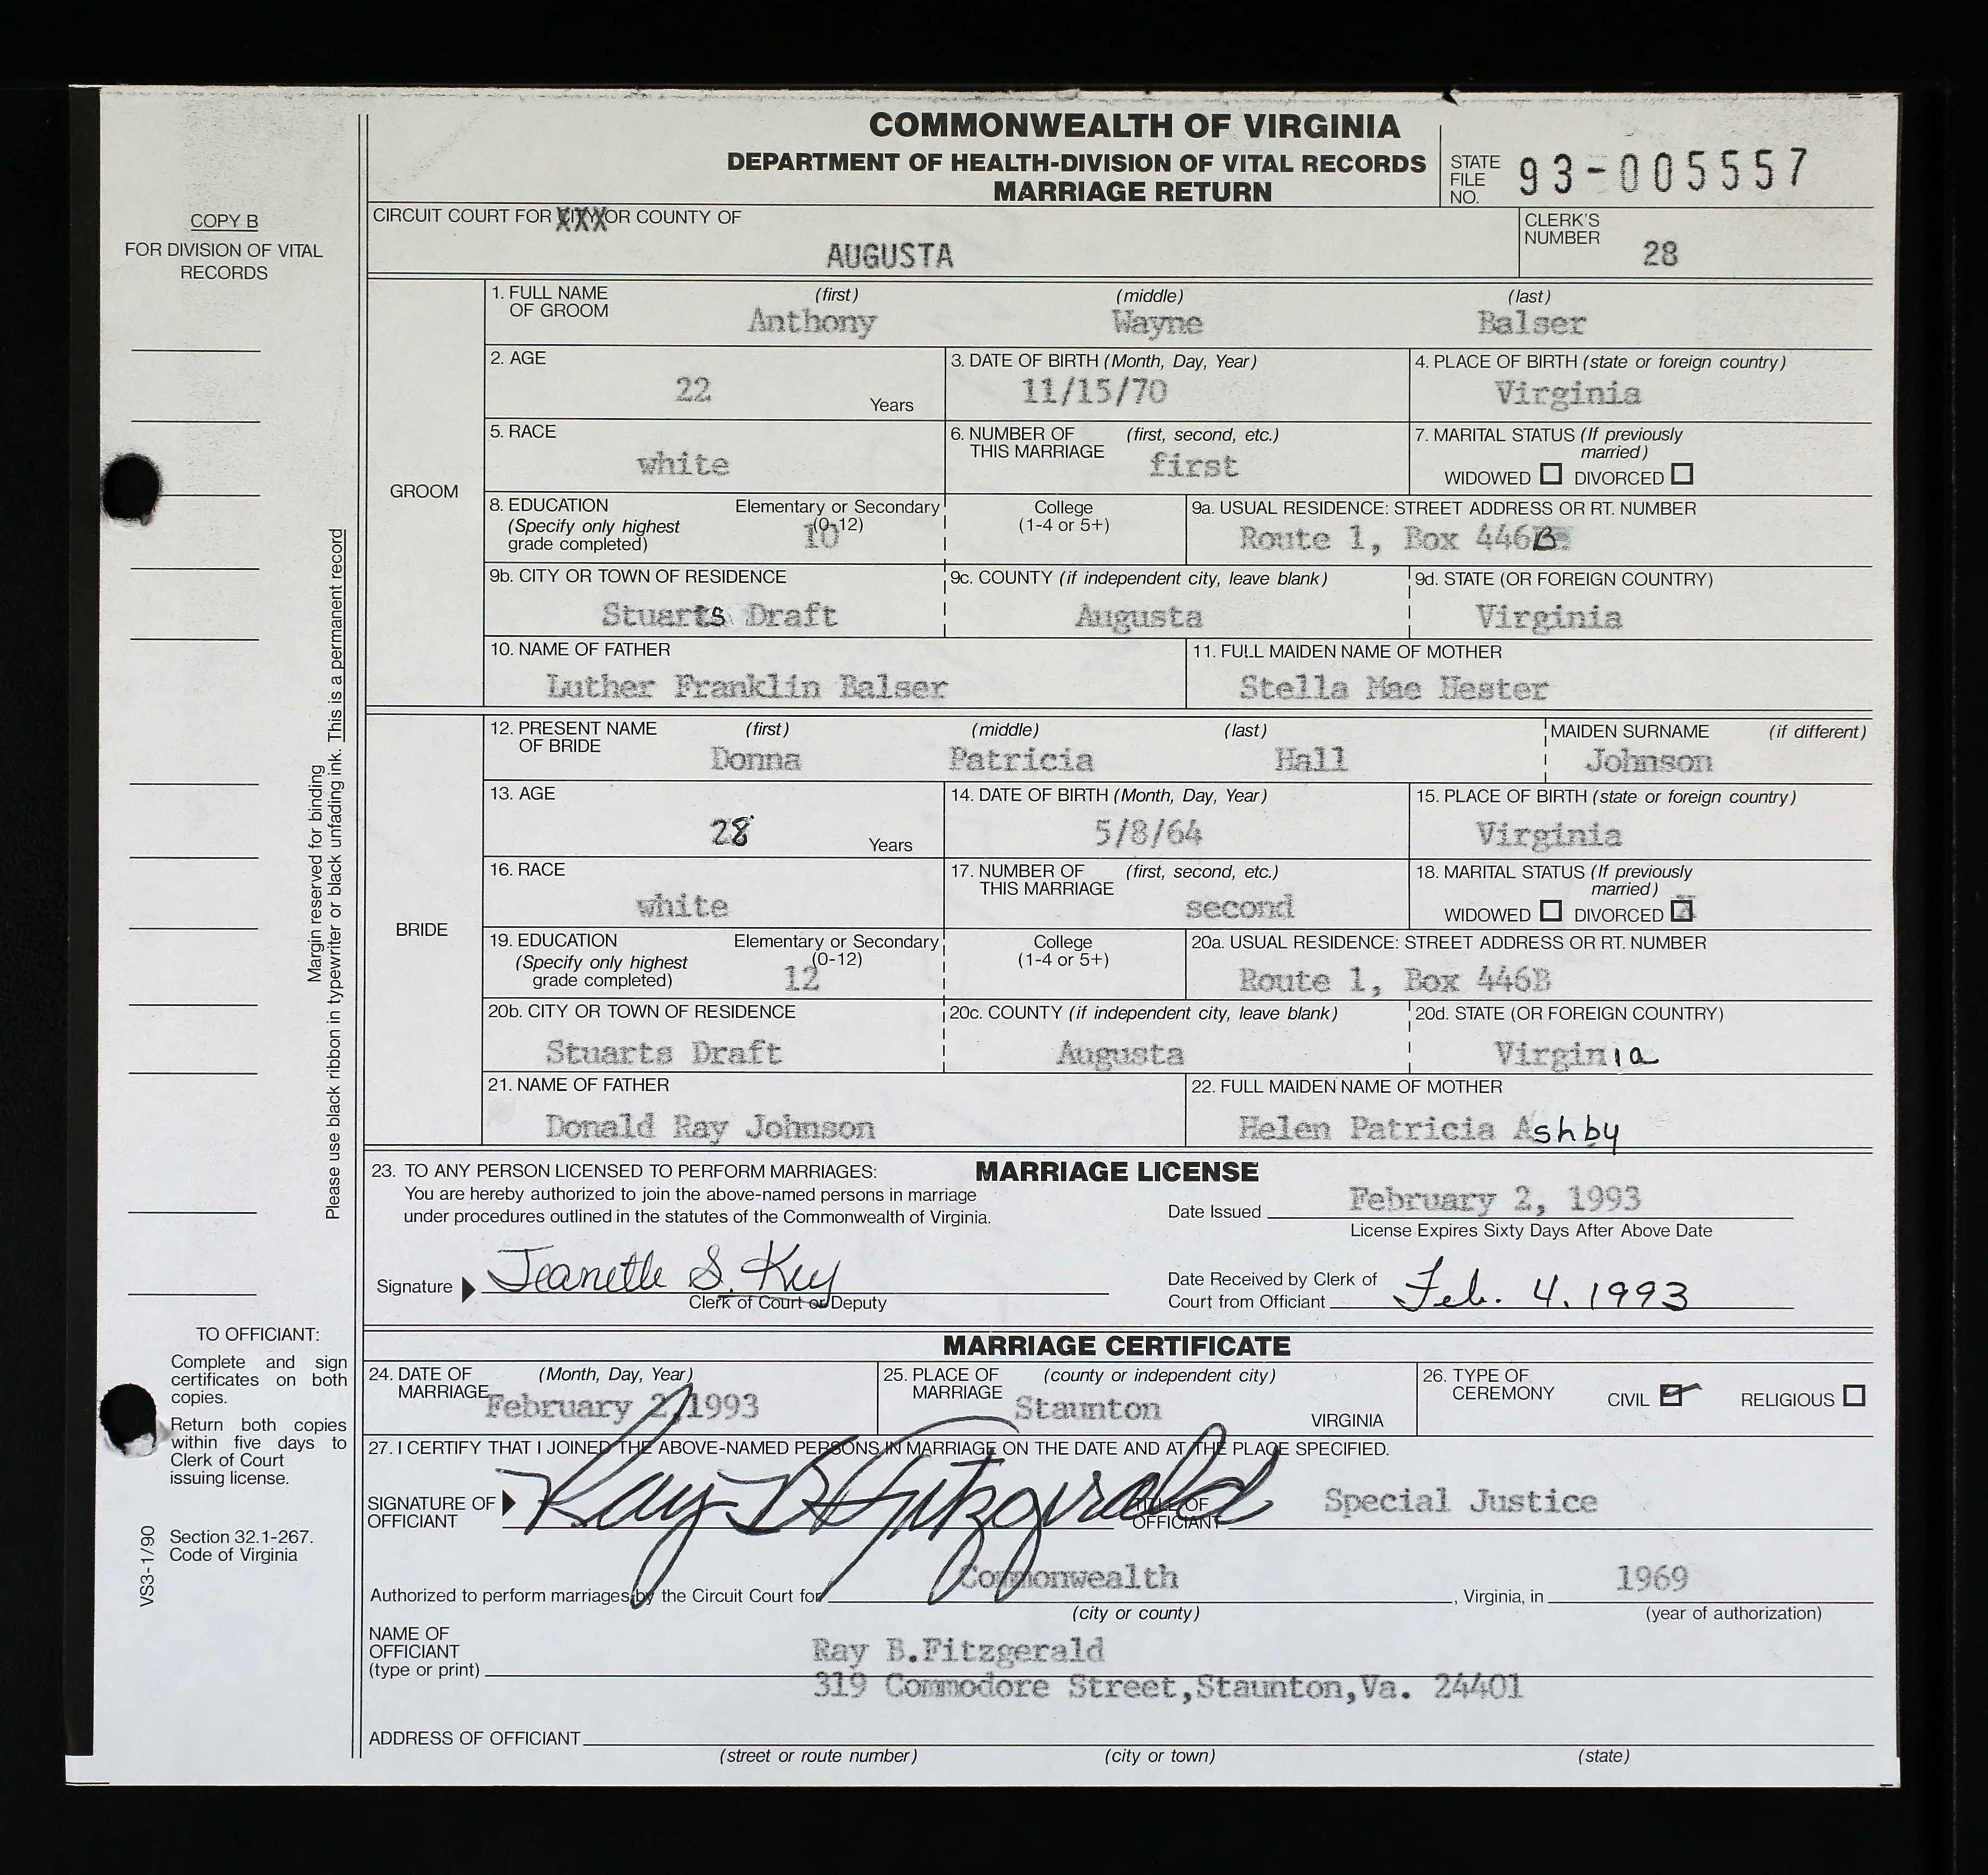 COMMONWEALTH OF VIRGINIA
DEPARTMENT OF HEALTH-DIVISION OF VITAL RECORDS
MARRIAGE RETURN
STATE FILE NO. 93-005557
COPY B
FOR DIVISION OF VITAL
RECORDS
CIRCUIT COURT FOR XXX OR COUNTY OF
AUGUSTA
CLERK'S NUMBER 28
GROOM
1. FULL NAME OF GROOM (first) (middle) (last)
Anthony Wayne Balser
2. AGE 22 Years
3. DATE OF BIRTH (Month, Day, Year) 11/15/70
4. PLACE OF BIRTH (state or foreign country) Virginia
5. RACE white
6. NUMBER OF THIS MARRIAGE (first, second, etc.) first
7. MARITAL STATUS (If previously married)
WIDOWED DIVORCED
8. EDUCATION (Specify only highest grade completed) Elementary or Secondary (0-12) 10
College (1-4 or 5+)
9a. USUAL RESIDENCE: STREET ADDRESS OR RT. NUMBER
Route 1, Box 446B
9b. CITY OR TOWN OF RESIDENCE Stuarts Draft
9c. COUNTY (if independent city, leave blank) Augusta
9d. STATE (OR FOREIGN COUNTRY) Virginia
10. NAME OF FATHER Luther Franklin Balser
11. FULL MAIDEN NAME OF MOTHER Stella Mae Hester
BRIDE
12. PRESENT NAME OF BRIDE (first) (middle) (last) MAIDEN SURNAME (if different)
Donna Patricia Hall Johnson
13. AGE 28 Years
14. DATE OF BIRTH (Month, Day, Year) 5/8/64
15. PLACE OF BIRTH (state or foreign country) Virginia
16. RACE white
17. NUMBER OF THIS MARRIAGE (first, second, etc.) second
18. MARITAL STATUS (If previously married)
WIDOWED DIVORCED X
19. EDUCATION (Specify only highest grade completed) Elementary or Secondary (0-12) 12
College (1-4 or 5+)
20a. USUAL RESIDENCE: STREET ADDRESS OR RT. NUMBER
Route 1, Box 446B
20b. CITY OR TOWN OF RESIDENCE Stuarts Draft
20c. COUNTY (if independent city, leave blank) Augusta
20d. STATE (OR FOREIGN COUNTRY) Virginia
21. NAME OF FATHER Donald Ray Johnson
22. FULL MAIDEN NAME OF MOTHER Helen Patricia Ashby
Margin reserved for binding
Please use black ribbon in typewriter or black unfading ink. This is a permanent record
MARRIAGE LICENSE
23. TO ANY PERSON LICENSED TO PERFORM MARRIAGES:
You are hereby authorized to join the above-named persons in marriage
under procedures outlined in the statutes of the Commonwealth of Virginia.
Date Issued February 2, 1993
License Expires Sixty Days After Above Date
Signature Jeanette S. Key
Clerk of Court or Deputy
Date Received by Clerk of
Court from Officiant Feb. 4, 1993
MARRIAGE CERTIFICATE
24. DATE OF MARRIAGE (Month, Day, Year) February 2,1993
25. PLACE OF MARRIAGE (county or independent city) Staunton VIRGINIA
26. TYPE OF CEREMONY CIVIL RELIGIOUS
27. I CERTIFY THAT I JOINED THE ABOVE-NAMED PERSONS IN MARRIAGE ON THE DATE AND AT THE PLACE SPECIFIED.
SIGNATURE OF OFFICIANT Ray B Fitzgerald
TITLE OF OFFICIANT Special Justice
Authorized to perform marriages by the Circuit Court for Commonwealth , Virginia, in 1969
(city or county) (year of authorization)
NAME OF OFFICIANT (type or print) Ray B.Fitzgerald
319 Commodore Street,Staunton,Va. 24401
ADDRESS OF OFFICIANT
(street or route number) (city or town) (state)
TO OFFICIANT:
Complete and sign
certificates on both
copies.
Return both copies
within five days to
Clerk of Court
issuing license.
Section 32.1-267.
Code of Virginia
VS3-1/90